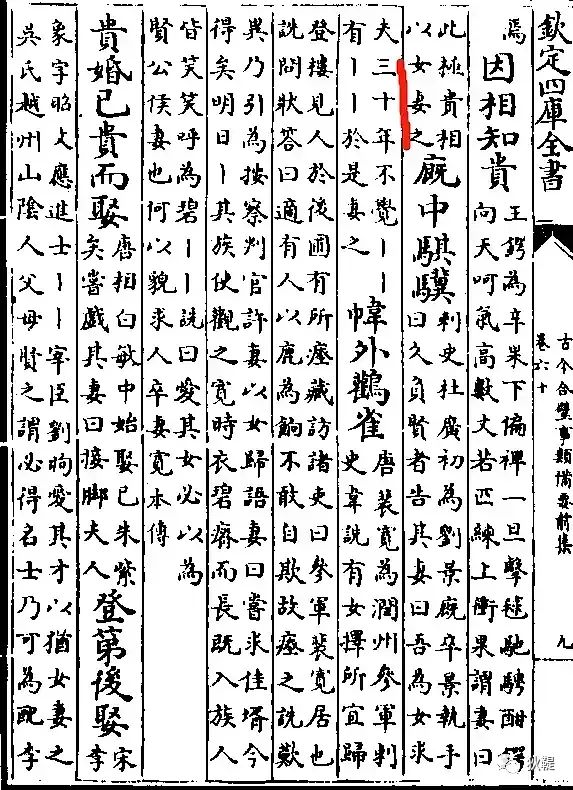 欽定四庫全書
古今合璧事類備要前集
卷六十
九
焉
因相知貴
王鍔為卒朱下偏裨一旦擊毬馳騁酣鍔
向天呵氣高數丈若匹練上衝果謂妻曰
此極貴相
以女妻之
廐中騏驥
刺史杜廣初為劉景廐卒景執手
曰久負賢者告其妻曰吾為女求
夫三十年不覺丨丨
有丨丨於是妻之
幃外鸛雀
唐裴寬為潤州參軍判
史韋詵有女擇所宜歸
登樓見人於後圃有所瘞藏訪諸吏曰參軍裴寬居也
詵問狀答曰適有人以鹿為餉不敢自欺故瘞之詵歎
異乃引為按察判官許妻以女歸語妻曰嘗求佳壻今
得矣明日丨其族使觀之寬時衣碧瘠而長既入族人
皆笑笑呼為碧丨丨詵曰愛其女必以為
賢公侯妻也何以貌求人卒妻寬本傳
貴婚已貴而娶
唐相白敏中始娶已朱紫
矣嘗戲其妻曰接脚夫人
登第後娶
宋
李
象字昭文應進士丨丨宰臣劉昫愛其才以猶女妻之
吳氏越州山陰人父母賢之謂必得名士乃可為配李
狄鞮